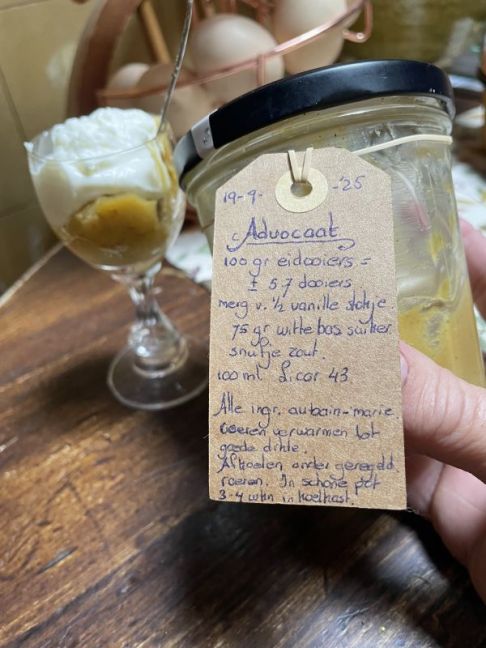 19-9- -'25
Advocaat
100 gr eidooiers =
± 5.7 dooiers
merg v. ½ vanille stokje
75 gr witte bas. suiker
snufje zout.
100 ml Licor 43.
Alle ingr. au bain-marie
roeren verwarmen tot
goede dikte.
Afkoelen onder geregeld
roeren. In schone pot
3-4 wkn in koelkast.